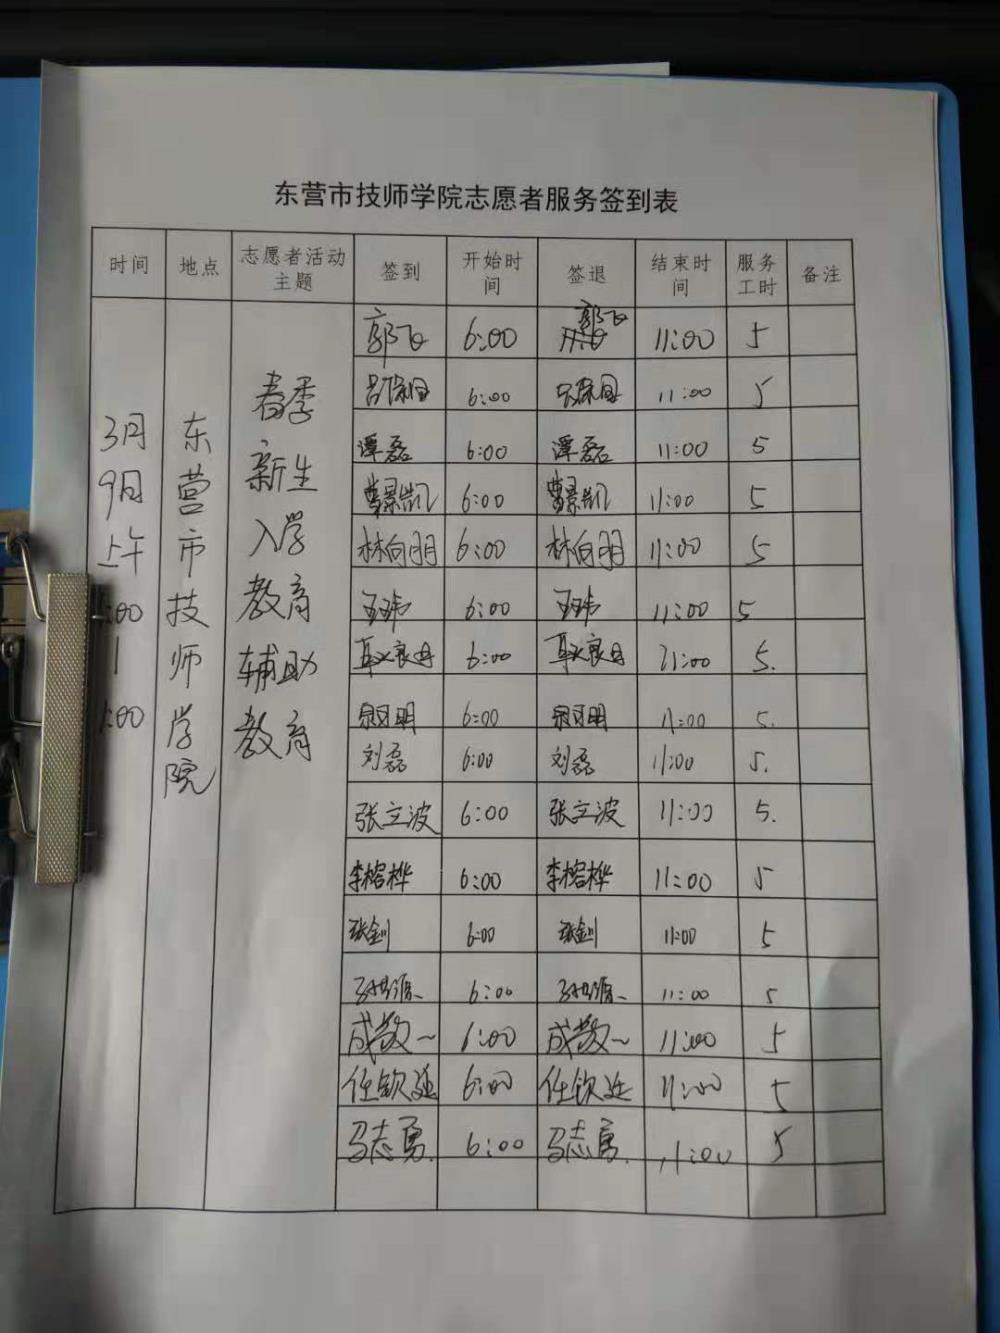 东营市技师学院志愿者服务签到表
时间 地点 志愿者活动主题 签到 开始时间 签退 结束时间 服务工时 备注
3月9月上午 :00 | :00
东营市技师学院
春季新生入学教育辅助教育
郭飞 6:00 郭飞 11:00 5
6:00 11:00 5
谭磊 6:00 谭磊 11:00 5
曹景凯 6:00 曹景凯 11:00 5
林向明 6:00 林向明 11:00 5
王玮 6:00 王玮 11:00 5
6:00 11:00 5.
6:00 11:00 5.
刘磊 6:00 刘磊 11:00 5.
张立波 6:00 张立波 11:00 5.
李榕桦 6:00 李榕桦 11:00 5
张钊 6:00 张钊 11:00 5
6:00 11:00 5
成教一 6:00 成教一 11:00 5
任钦延 6:00 任钦延 11:00 5
马志勇. 6:00 马志勇. 11:00 5